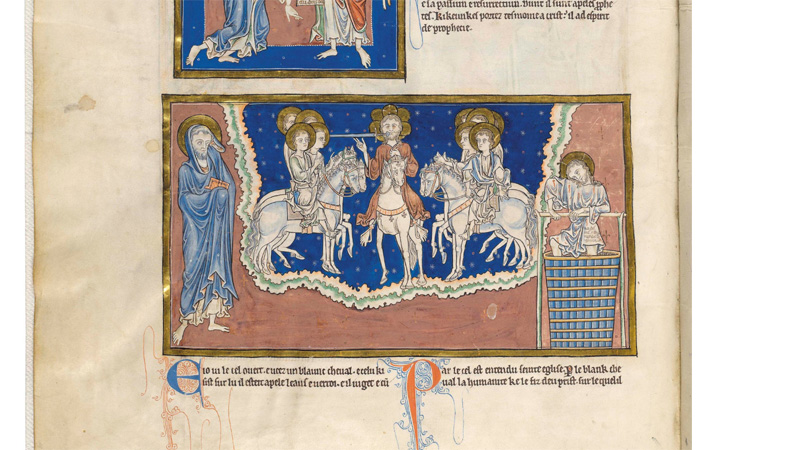 e sa passiun e resurrectiun. dunt il sunt apeles pphe
tes. Ki keunkes portez tesmoine a crist: il ad espirit
de prophecie.
E io vi le ciel overt. e veez un blaunc cheval. e celui ki
sist sur lui
Par le cel est entendu seinte eglise. Par le blank che
val la humanite ke le fiz deu prist. sur le quel il